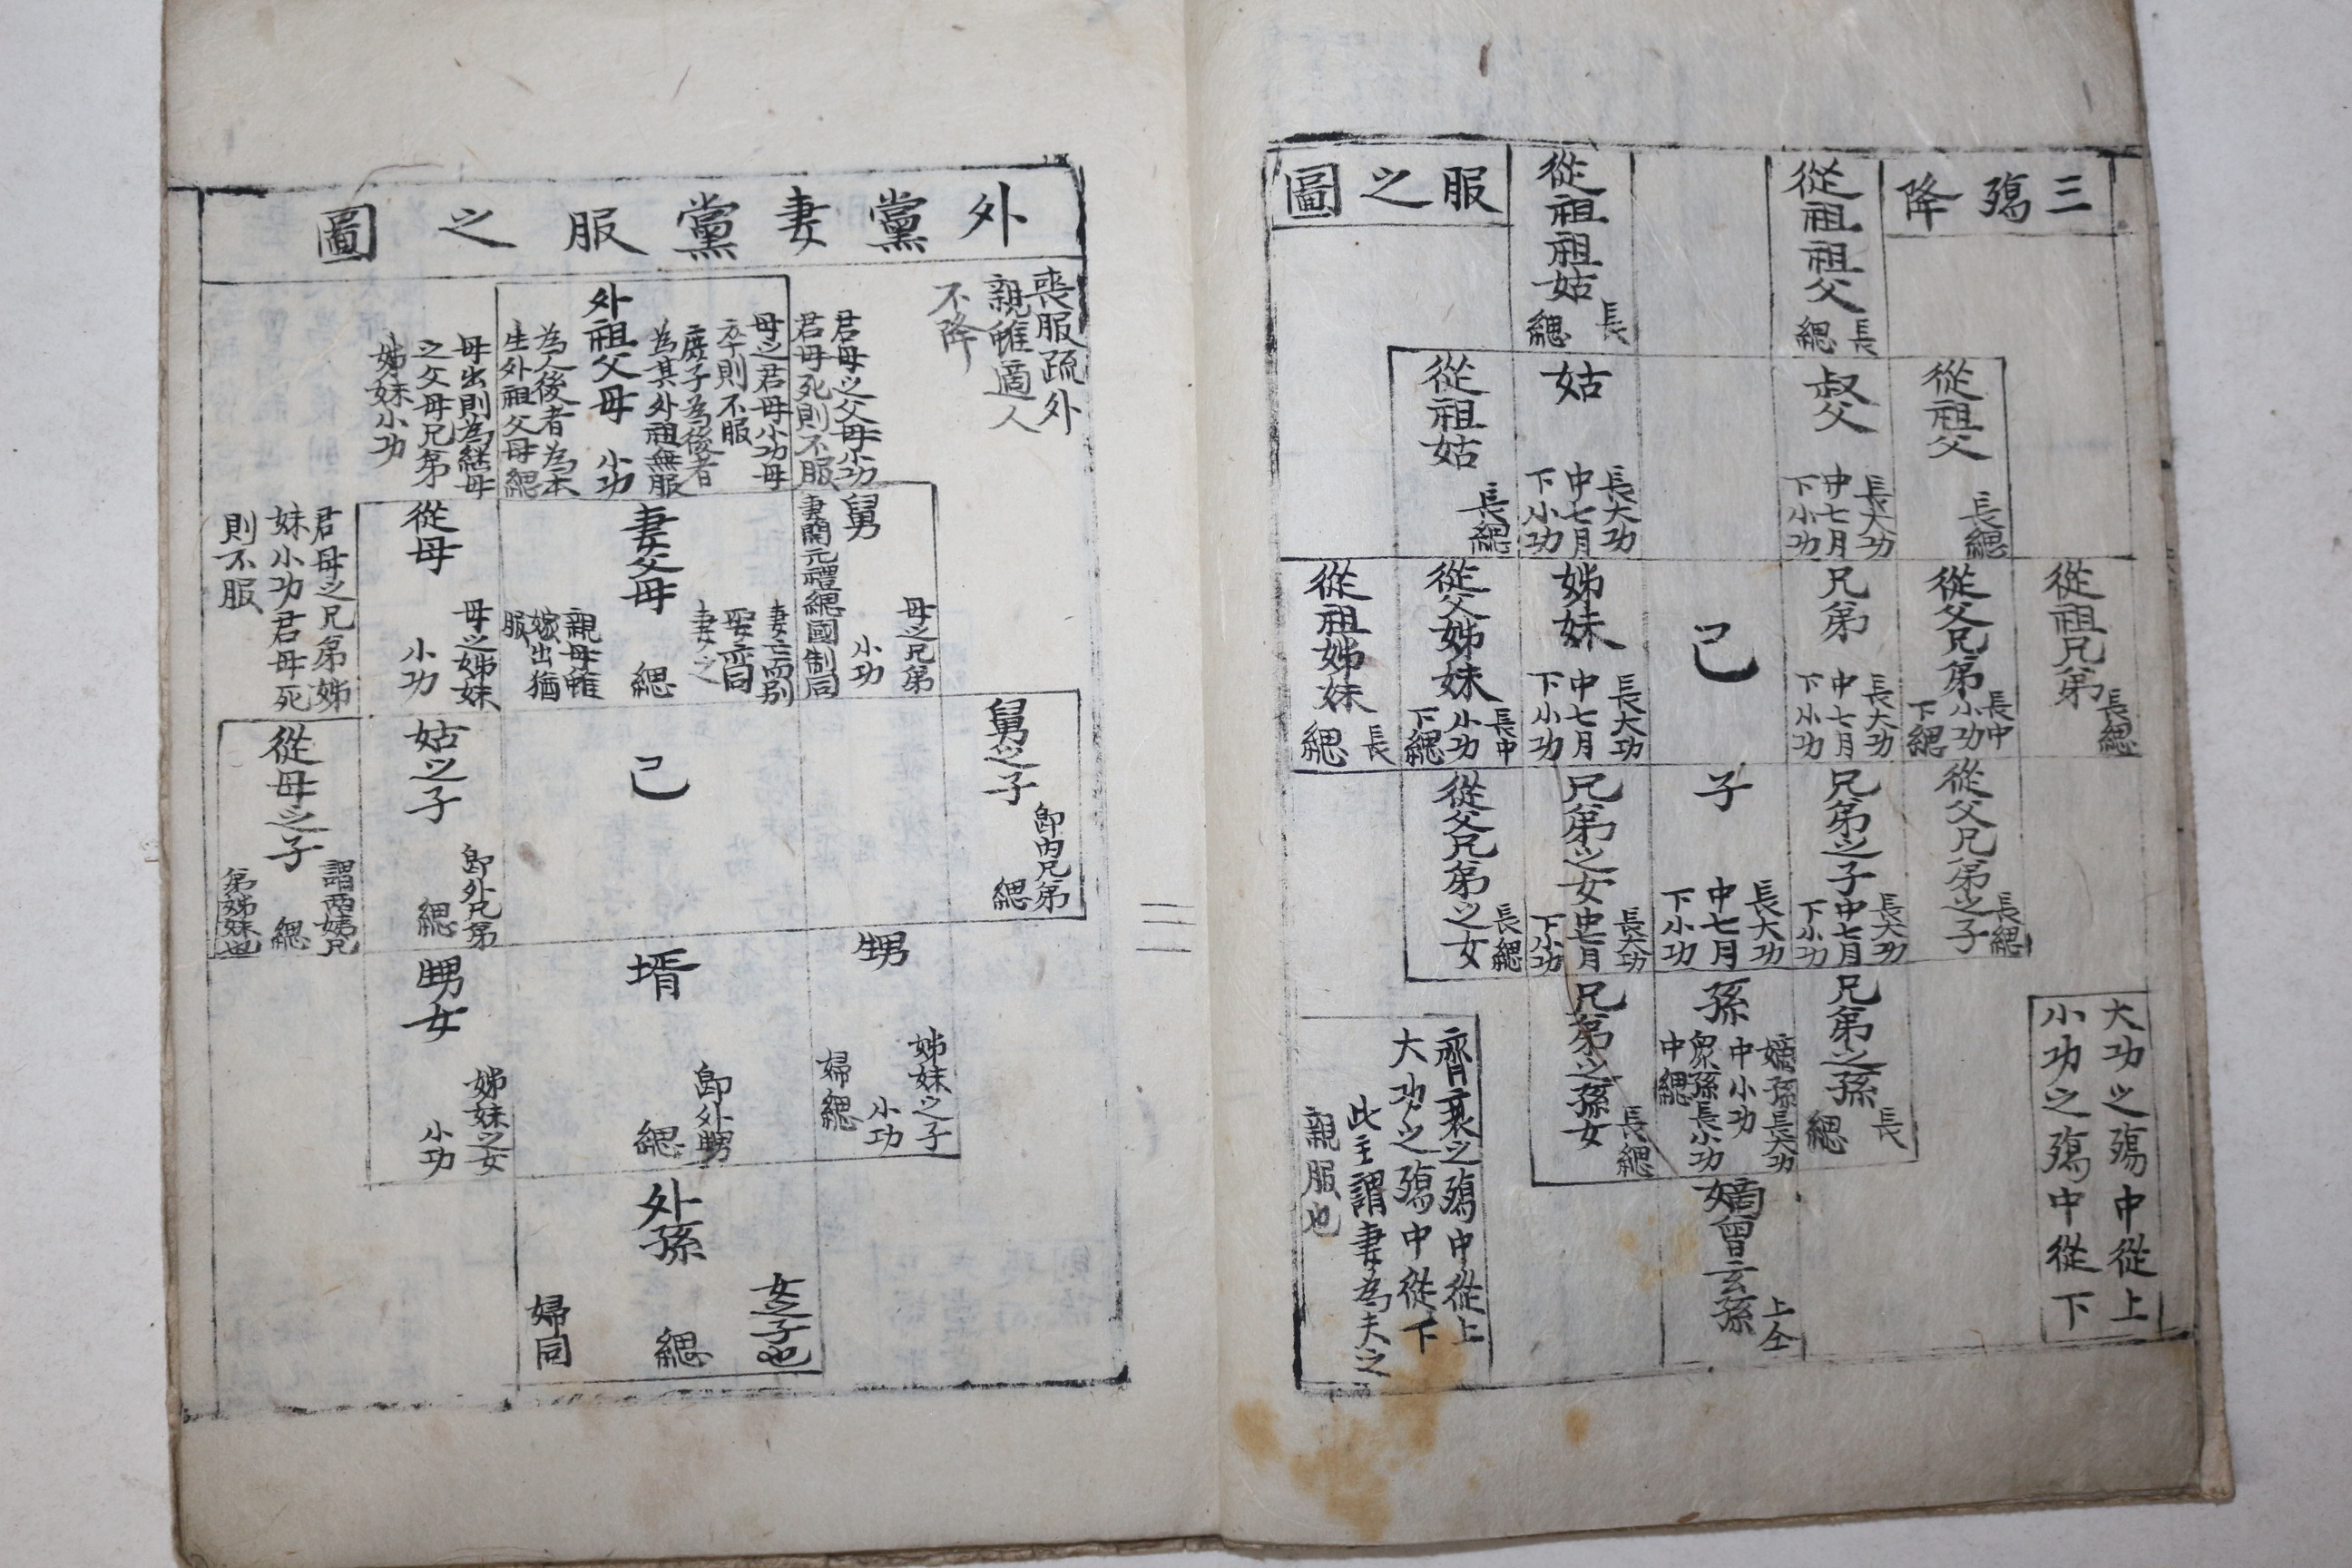 三殤降服之圖
從祖祖父
長
緦
從祖祖姑
長
緦
從祖父
長緦
叔父
長大功
中七月
下小功
姑
長大功
中七月
下小功
從祖姑
長緦
從祖兄弟
長緦
從父兄弟
長中
小功
下緦
兄弟
長大功
中七月
下小功
己
姊妹
長大功
中七月
下小功
從父姊妹
長中
小功
下緦
從祖姊妹
長
緦
從父兄弟之子
長緦
兄弟之子
長大功
中七月
下小功
子
長大功
中七月
下小功
兄弟之女
長大功
中七月
下小功
從父兄弟之女
長緦
兄弟之孫
長
緦
孫
嫡孫長大功
中小功
眾孫長小功
中緦
兄弟之孫女
長緦
嫡曾玄孫
上仝
大功之殤中從上
小功之殤中從下
齊衰之殤中從上
大功之殤中從下
此主謂妻為夫之
親服也
外黨妻黨服之圖
喪服疏外
親雖適人
不降
君母之父母小功
君母死則不服
外祖父母
小功
母之君母小功母
卒則不服
庶子為後者
為其外祖無服
為人後者為本
生外祖父母緦
母出則為繼母
之父母兄弟
姊妹小功
舅
母之兄弟
小功
妻開元禮緦國制同
妻父母
緦
妻亡而別
娶亦同
妻之
親母雖
嫁出猶
服
從母
母之姊妹
小功
君母之兄弟姊
妹小功君母死
則不服
舅之子
即內兄弟
緦
己
姑之子
即外兄弟
緦
從母之子
謂兩姨兄
緦
弟姊妹也
甥
姊妹之子
小功
婦緦
壻
即外甥
緦
甥女
姊妹之女
小功
外孫
女之子也
緦
婦同